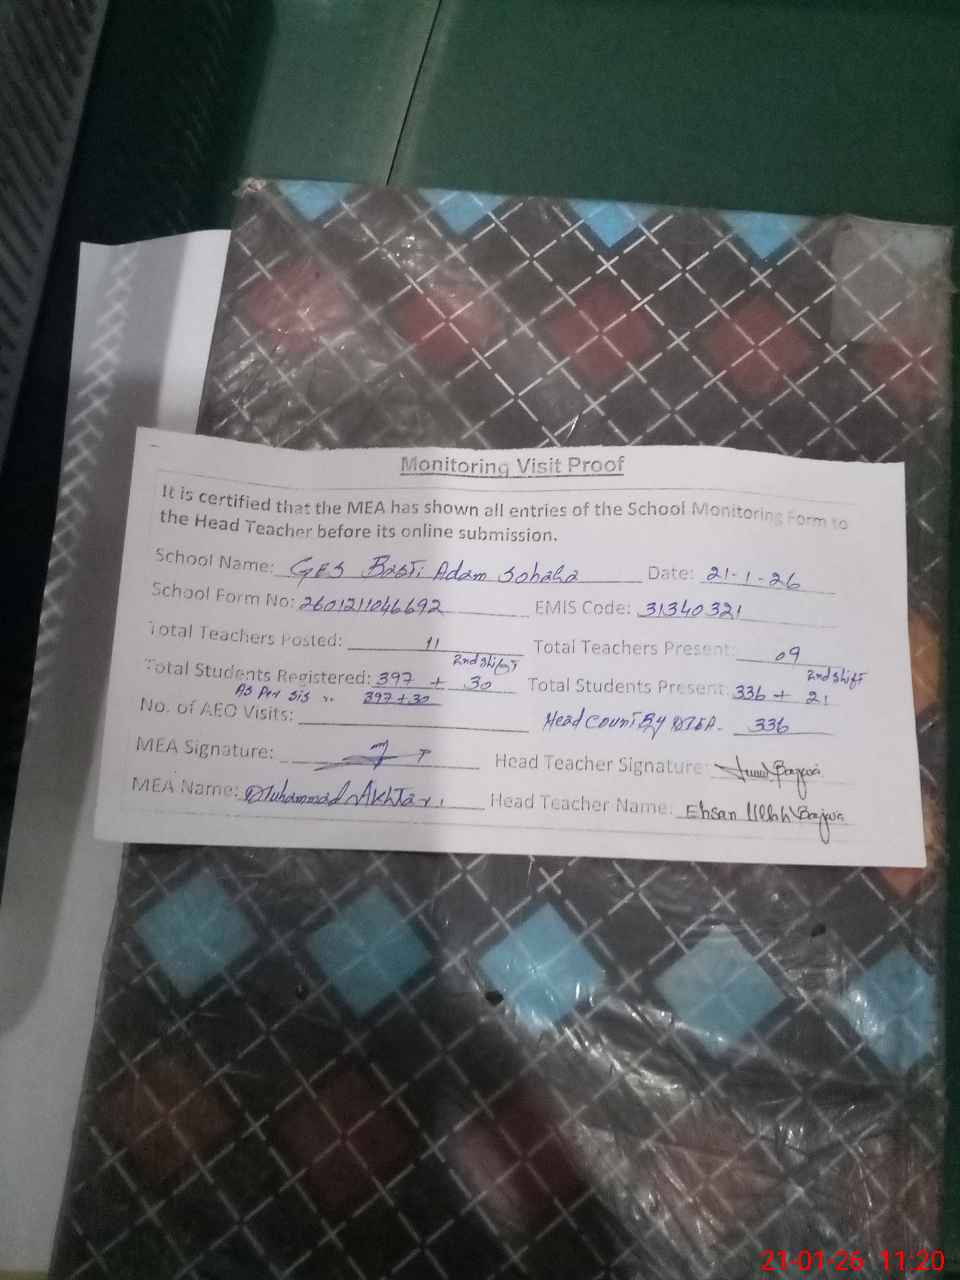 Monitoring Visit Proof
It is certified that the MEA has shown all entries of the School Monitoring Form to
the Head Teacher before its online submission.
School Name: GES Basti Adam Sohaha Date: 21-1-26
School Form No: 2601211046692 EMIS Code: 31340321
Total Teachers Posted: 11 Total Teachers Present: 09
2nd Shift 2nd Shift
Total Students Registered: 397 + 30 Total Students Present: 336 + 21
As Per SIS 397+30
No. of AEO Visits: Head Count By MEA. 336
MEA Signature: Head Teacher Signature: Bajwa
MEA Name: Muhammad Akhtar Head Teacher Name: Ehsan Ullah Bajwa
21-01-26 11:20